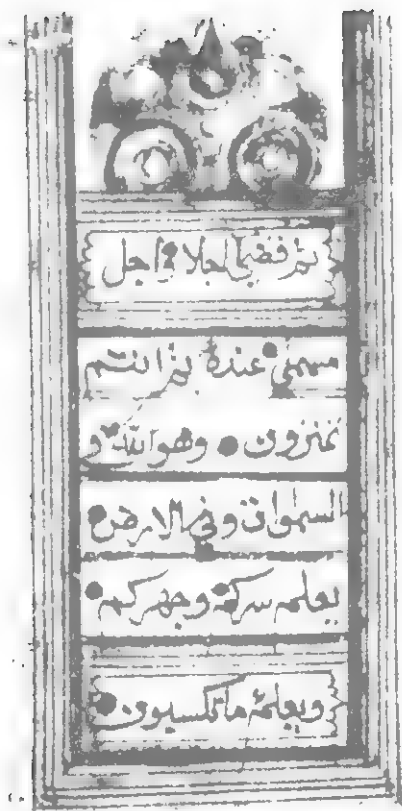 ثم قضى اجلا و اجل
مسمى عنده ثم انتم
تمترون وهو الله في
السموات وفي الارض
يعلم سركم وجهركم
ويعلم ما تكسبون